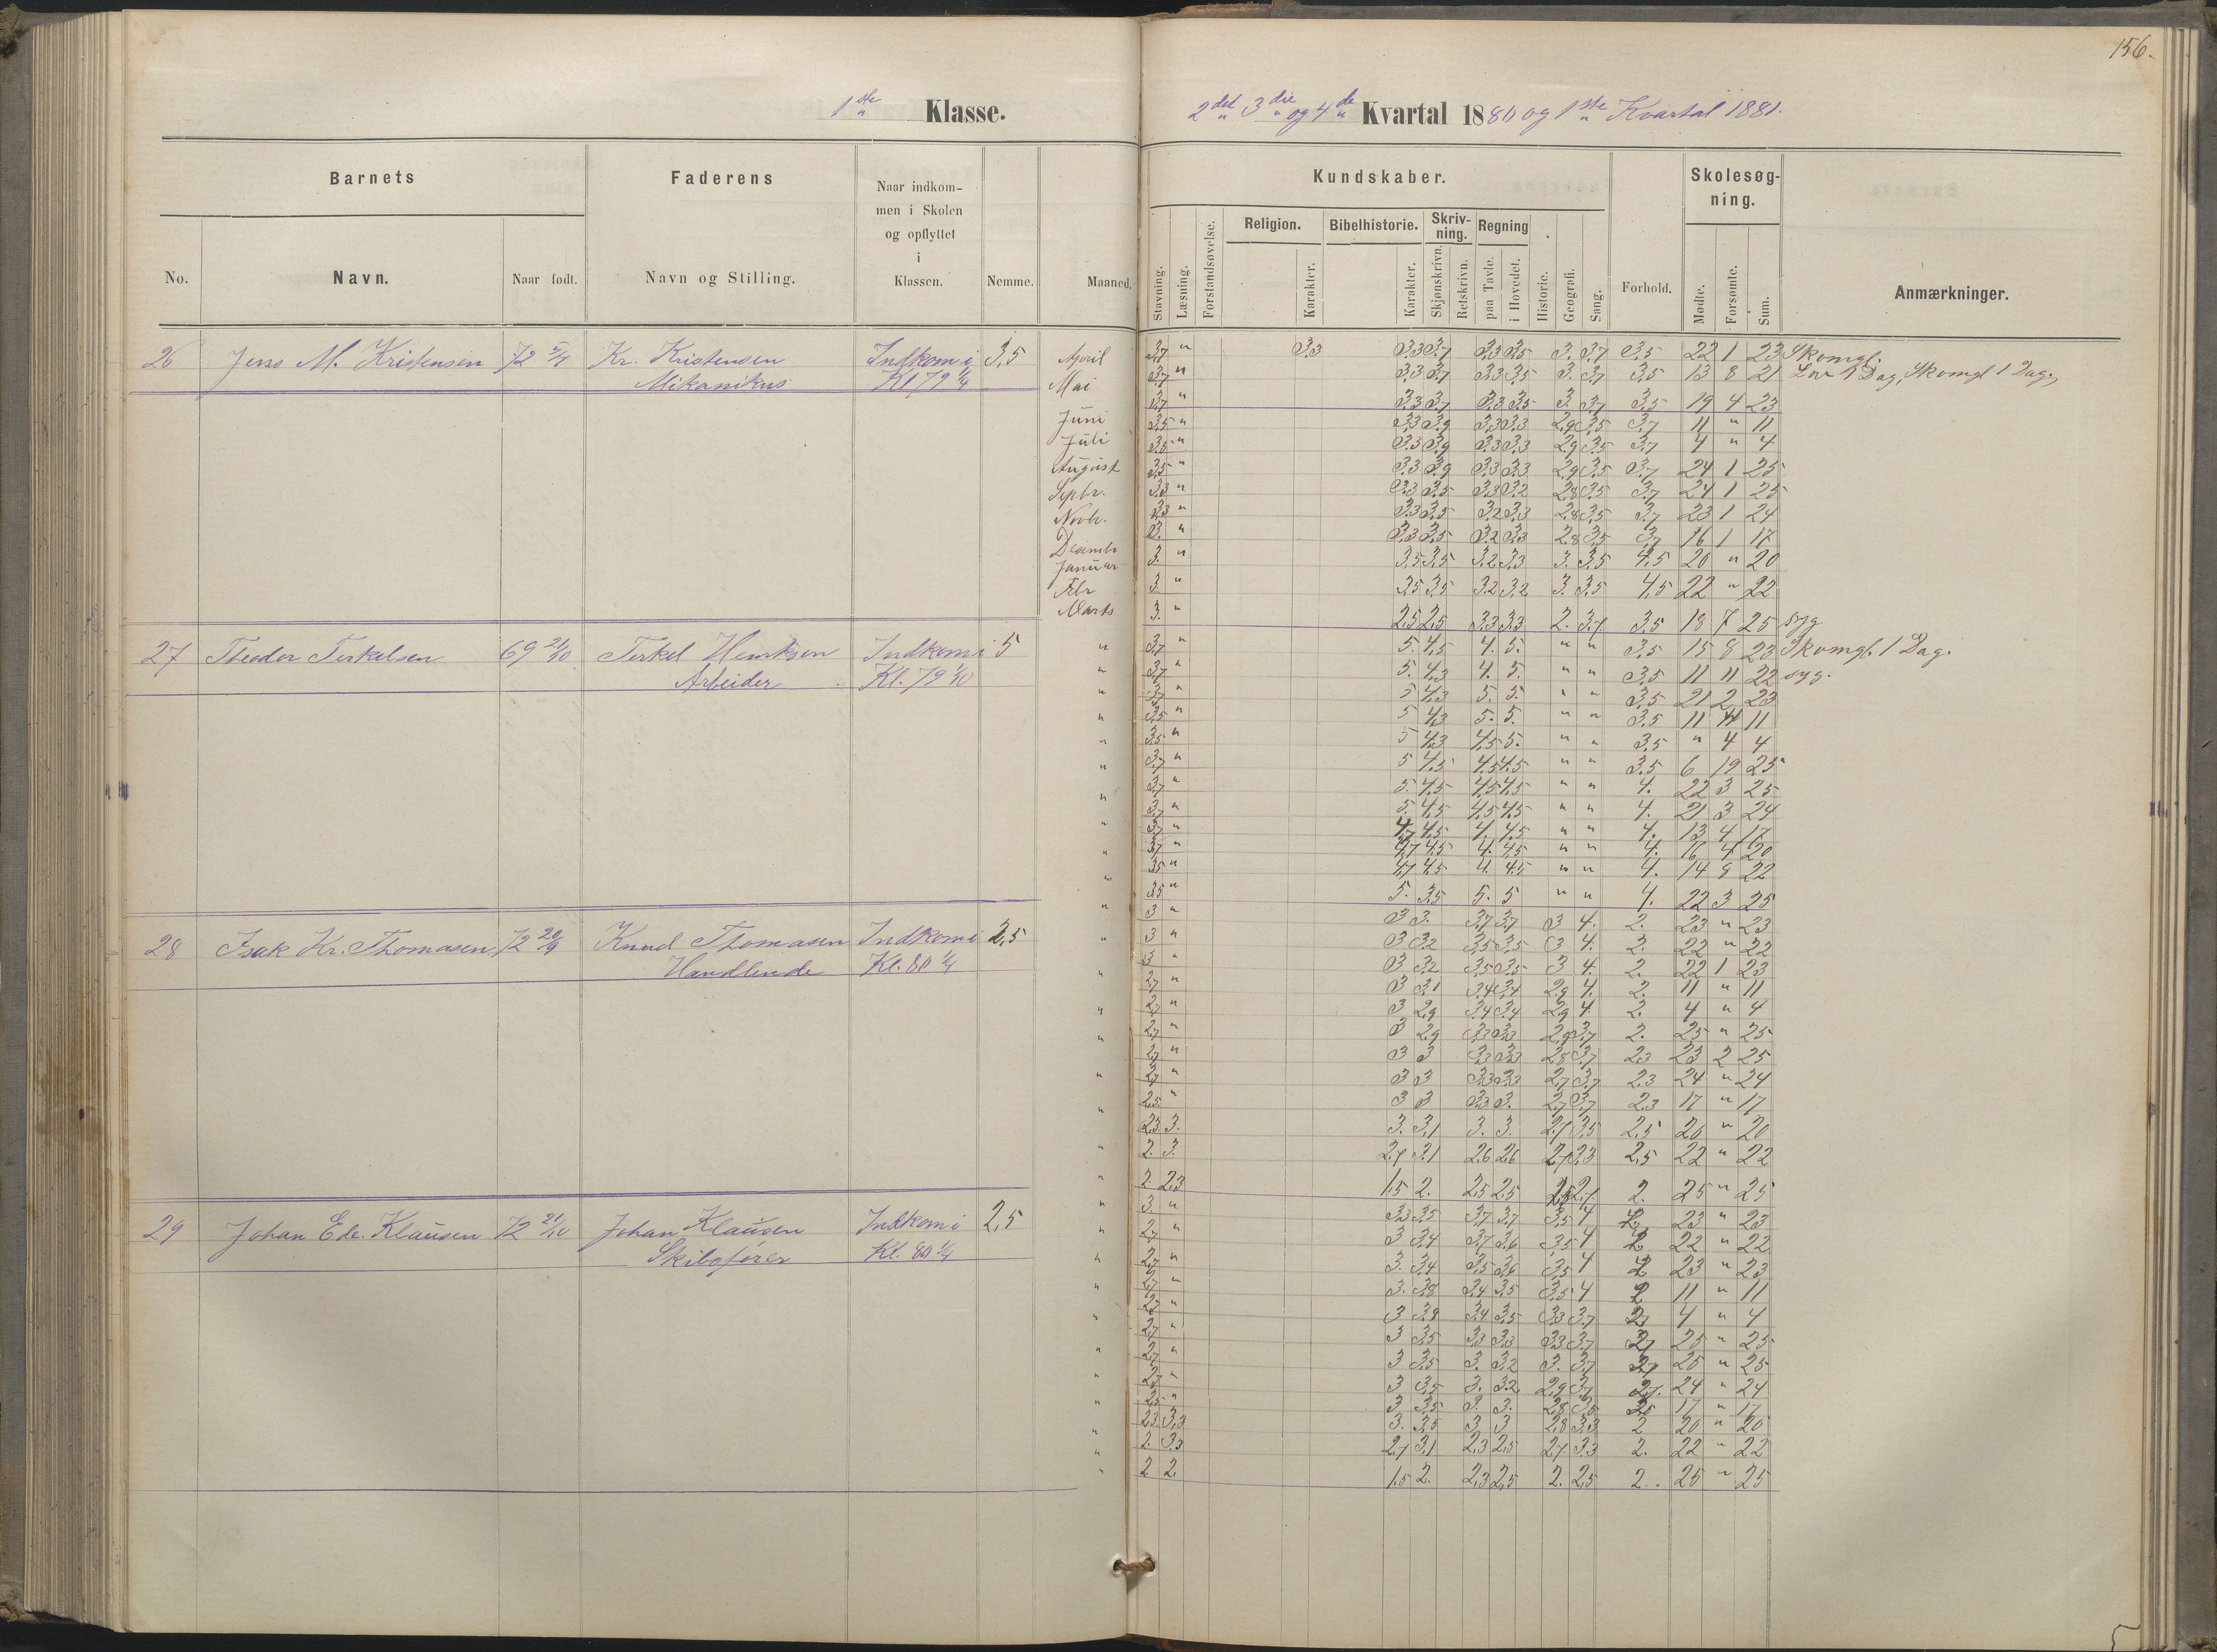 156.
1ste Klasse.
2det 3die og 4de Kvartal 1880 og 1ste Kvartal 1881.
Barnets Faderens Naar indkommen i Skolen og opflyttet i Klassen. Nemme. Maaned.
No. Navn. Naar født. Navn og Stilling.
Kundskaber. Forhold. Skolesøgning. Anmærkninger.
Stavning. Læsning. Forstandsøvelse. Religion. Karakter. Bibelhistorie. Karakter. Skrivning. Skjønskrivn. Retskrivn. Regning paa Tavle. i Hovedet. Historie. Geografi. Sang. Mødte. Forsømte. Sum.
26 Jens M. Kristensen 72 5/4 Kr. Kristensen Indkom i 3,5
Mikanikus Kl 79 1/4
April 3,7 " 3,3 3,3 3,7 3,3 3,5 3. 3,7 3,5 22 1 23 Skomgl.
Mai 3,7 " 3,3 3,7 3,3 3,5 3. 3,7 3,5 13 8 21 1 Dag, Skomgl 1 Dag.
Juni 3,7 " 3,3 3,7 3,3 3,5 3. 3,7 3,5 19 4 23
Juli 3,5 " 3,3 3,9 3,3 3,3 2,9 3,5 3,7 11 " 11
August 3,5 " 3,3 3,9 3,3 3,3 2,9 3,5 3,7 4 " 4
Septbr. 3,5 " 3,3 3,9 3,3 3,3 2,9 3,5 3,7 24 1 25
Novbr. 3,3 " 3,3 3,5 3,3 3,2 2,8 3,5 3,7 24 1 25
Decembr 3,3 " 3,3 3,5 3,2 3,3 2,8 3,5 3,7 23 1 24
Januar 3. " 3,3 3,5 3,2 3,3 2,8 3,5 3,7 16 1 17
Febr 3. " 3,5 3,5 3,2 3,3 3. 3,5 4,5 20 " 20
Marts 3 " 3,5 3,5 3,2 3,2 3. 3,5 4,5 22 " 22
3. " 2,5 2,5 3,3 3,3 2. 3,7 3,5 18 7 25 syg
27 Theodor Terkelsen 69 21/10 Terkel Henriksen Indkom i 5
Arbeider Kl. 79 1/10
3,7 " 5. 4,5 4. 5. " " 3,5 15 8 23 Skomgl. 1 Dag.
3,7 " 5. 4,3 4. 5. " " 3,5 11 11 22 syg.
3,7 " 5 4,3 5. 5. " " 3,5 21 2 23
3,5 " 5 4,3 5. 5. " " 3,5 11 11
3,5 " 5 4,3 4,5 5. " " 3,5 " 4 4
3,7 " 5 4,5 4,5 4,5 " " 3,5 6 19 25
3,7 " 5. 4,5 4,5 4,5 " " 4. 22 3 25
3,7 " 5. 4,5 4,5 4,5 " " 4. 21 3 24
3,7 " 4,7 4,5 4. 4,5 " " 4. 13 4 17
3,7 " 4,7 4,5 4. 4,5 " " 4. 16 4 20
3,5 " 4,7 4,5 4. 4,5 " " 4. 14 8 22
3,5 " 5. 3,5 5. 5 " " 4. 22 3 25
28 Isak Kr. Thomasen 72 20/9 Knud Thomasen Indkom i 2,5
Handlende Kl. 80 1/4
3 " 3 3. 3,7 3,7 3 4. 2. 23 " 23
3 " 3 3,2 3,5 3,5 3 4. 2. 22 " 22
3 " 3 3,2 3,5 3,5 3 4. 2. 22 1 23
2,7 " 3 3,1 3,4 3,4 2,9 4. 2. 11 " 11
2,7 " 3 2,9 3,4 3,4 2,9 4. 2. 4 " 4
2,7 " 3 2,9 3,3 3,3 2,9 3,7 2. 25 " 25
2,7 " 3 3 3,3 3,3 2,8 3,7 2,3 23 2 25
2,7 " 3 3 3,3 3,3 2,7 3,7 2,3 24 " 24
2,5 " 3 3 3,3 3. 2,7 3,7 2,3 17 " 17
2,3 3. 3. 3,1 3. 3. 2,7 3,5 2,5 20 " 20
2. 3. 2,7 3,1 2,6 2,6 2,7 3,3 2,5 22 " 22
2. 2,3 1,5 2. 2,5 2,5 2,5 2,7 2. 25 " 25
29 Johan Ede. Klausen 72 21/10 Johan Klausen Indkom i 2,5
Skibsfører Kl. 80 1/4
3 " 3,3 3,5 3,7 3,7 3,5 4 2 23 " 23
2,7 " 3 3,4 3,7 3,6 3,5 4 2 22 " 22
2,7 " 3. 3,4 3,5 3,6 3,5 4 2 23 " 23
2,7 " 3. 3,8 3,4 3,5 3,5 4 2 11 " 11
2,7 " 3 3,8 3,4 3,5 3,3 3,7 2 4 " 4
2,7 " 3 3,5 3,3 3,3 3,3 3,7 25 " 25
2,7 " 3 3,5 3. 3,2 3. 3,7 25 " 25
2,7 " 3 3,5 3. 3,2 2,9 3,7 2,7. 24 " 24
2,5 " 3 3,5 3. 3. 2,8 17 " 17
2,3 3,3 3. 3,5 3 3 2,8 3,3 2 20 " 20
2. 3,3 2,7 3,1 2,3 2,5 2,7 3,3 2. 22 " 22
2. 2. 1,5 2. 2,3 2,5 2. 2,5 2. 25 " 25